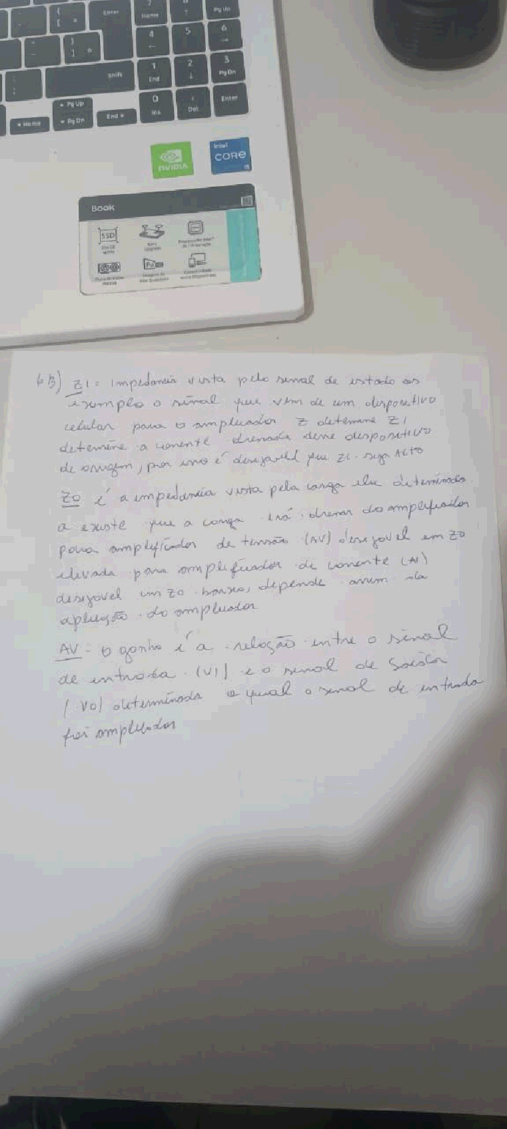 Enter
7
Home
Pg Up
4
5
6
Shift
1
End
2
3
Pg Dn
Pg Up
Home
Pg Dn
End
0
Ins
Del
Enter
NVIDIA
intel
CORE
i5
BOOK
SSD
ZI = Impedancia vista pelo sinal de
exemplo o sinal que vem de um dispositivo
celular para o amplicador Z determine ZI
determine a corrente drenada deste dispositivo
de origem, por isso é desejavel que ZI seja ALTO
ZO é a impedancia vista pela carga ela determinada
a existe que a carga irá drenar do amplificador
para amplificador de tensão (AV) desejavel em ZO
elevada para amplificador de corrente (AI)
desejavel um ZO baixo, depende assim da
aplicação do amplicador
AV = O ganho é a relação entre o sinal
de entrada (VI) e o sinal de Saida
(VO) determinada o qual o sinal de entrada
foi amplicador